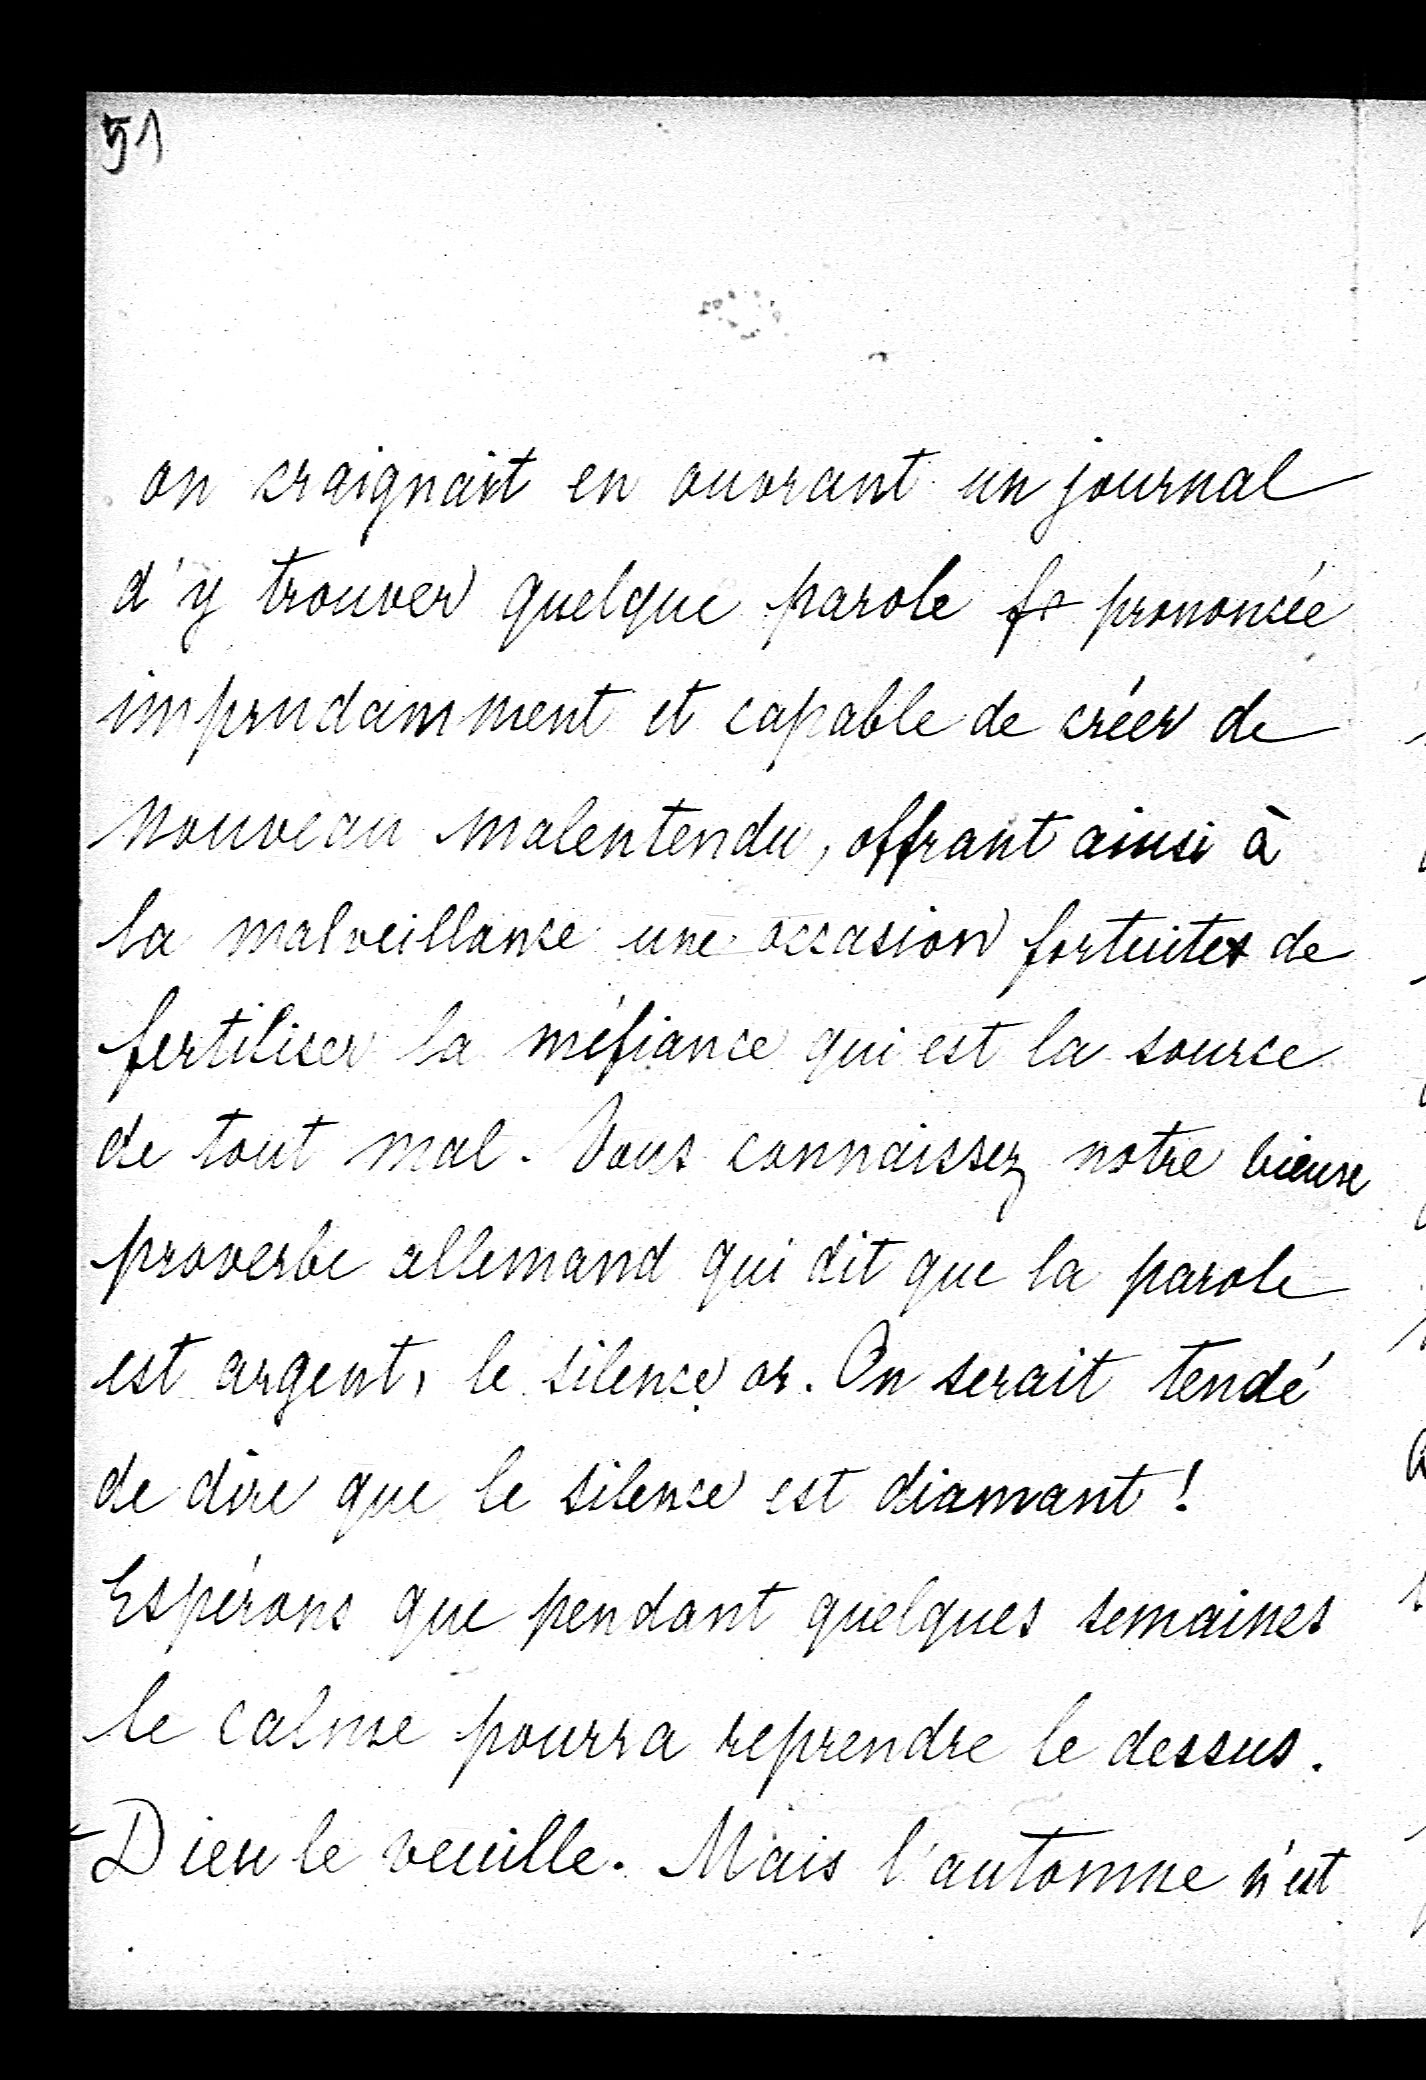 51
on craignait en ouvrant un journal
d'y trouver quelque parole prononcée
imprudamment et capable de créer de
nouveau malentendu, offrant ainsi à
la malveillance une occasion fortuite de
fertiliser la méfiance qui est la source
de tout mal. Vous connaissez notre
proverbe allemand qui dit que la parole
est argent, le silence or. On serait tendé
de dire que le silence est diamant!
Espérons que pendant quelques semaines
le calme pourra reprendre le dessus.
Dieu le veuille. Mais l'automne n'est